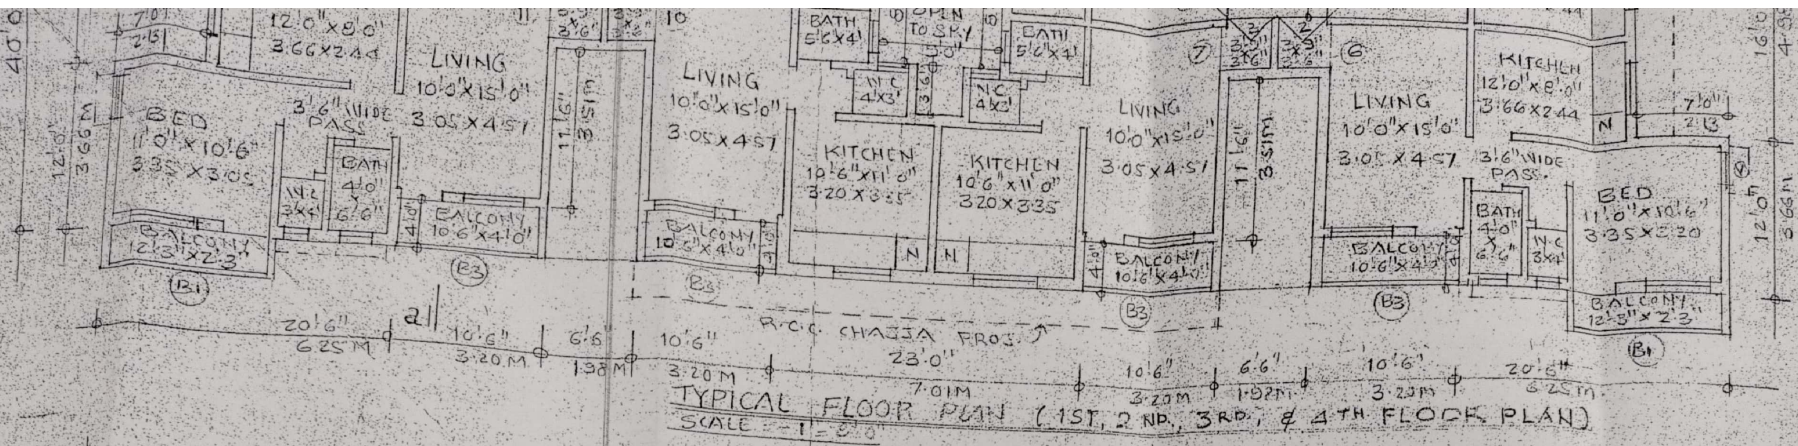 40'0
7'0"
2.13
12'0"X8'0"
3.66X2.44
12'0"
3.66M
BED
11'0"X10'6"
3.35 X3.05
3'6" WIDE
PASS
BATH
4'0"
X
6'6"
W.C
3'X4'
BALCONY
12'3"X2'3"
B1
LIVING
10'0"X15'0"
3.05X4.57
4'0"
BALCONY
10'6"X4'0"
B3
3'6"
11'6"
3.51M
10
LIVING
10'0"X15'0"
3.05X4.57
BALCONY
10'6"X4'0"
4'0"
B3
BATH
5'6X4'
OPEN
TO SKY
BATH
5'6"X4'
W.C
4'X3'
3'6"
W.C.
4'X3'
KITCHEN
10'6"X11'0"
3.20X3.35
N
KITCHEN
10'6"X11'0"
3.20X3.35
N
LIVING
10'0"X15'0"
3.05X4.57
4'0"
BALCONY
10'6"X4'0"
B3
7
6
11'6"
3.51M.
LIVING
10'0"X15'0"
3.05X4.57
BALCONY
10'6"X4'0"
B3
KITCHEN
12'0"X8'0"
3.66X2.44
N
7'0"
2.13
3'6"WIDE
PASS.
BATH
4'0"
X
6'6"
W.C
3'X4'
BED
11'0"X10'6"
3.35X3.20
BALCONY
12'3"X2'3"
B1
16'0
12'0"
3.66M
R.C.C. CHAJJA PROJ.
a
20'6"
6.25 M
10'6"
3.20M
6'6"
1.98M
10'6"
3.20M
23'0"
7.01M
10'6"
3.20M
6'6"
1.92M
10'6"
3.20M
20'6"
6.25M.
TYPICAL FLOOR PLAN (1ST, 2ND., 3RD, & 4TH FLOOR PLAN)
SCALE - 1"=8'0"